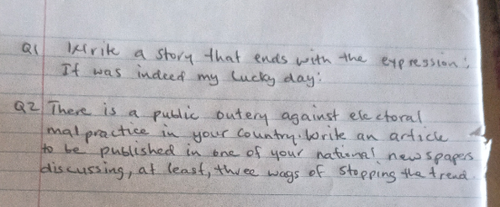 Q1 Write a story that ends with the expression:
It was indeed my lucky day:
Q2 There is a public outcry against electoral
malpractice in your country. Write an article
to be published in one of your national newspapers
discussing, at least, three ways of stopping the trend.